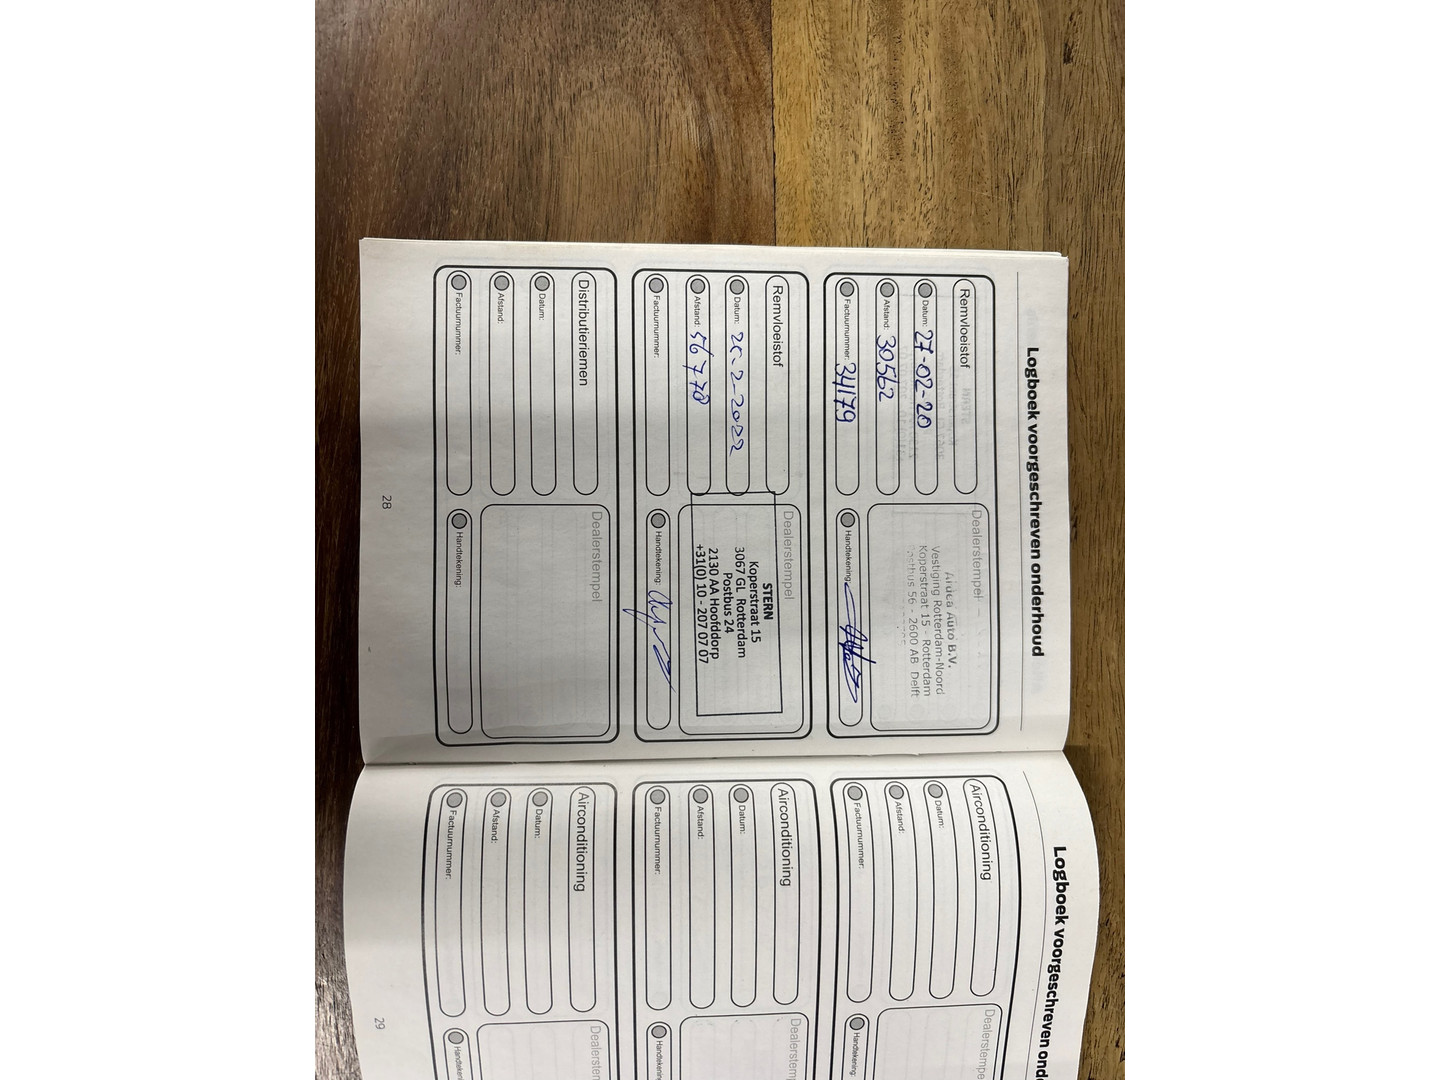 Logboek voorgeschreven onderhoud
Remvloeistof
Datum: 27-02-20
Afstand: 30562
Factuurnummer: 34179
Dealerstempel
Auto B.V.
Vestiging Rotterdam-Noord
Koperstraat 15 - Rotterdam
56 - 2600 AB Delft
Handtekening:
Remvloeistof
Datum: 2-2022
Afstand: 56778
Factuurnummer:
Dealerstempel
STERN
Koperstraat 15
3067 GL Rotterdam
Postbus 24
2130 AA Hoofddorp
+31(0) 10 - 207 07 07
Handtekening:
Distributieriemen
Datum:
Afstand:
Factuurnummer:
Dealerstempel
Handtekening:
28
Logboek voorgeschreven ond
Airconditioning
Datum:
Afstand:
Factuurnummer:
Dealerstempe
Handtekening:
Airconditioning
Datum:
Afstand:
Factuurnummer:
Dealerstemp
Handtekening:
Airconditioning
Datum:
Afstand:
Factuurnummer:
Dealerstem
Handtekenin
29